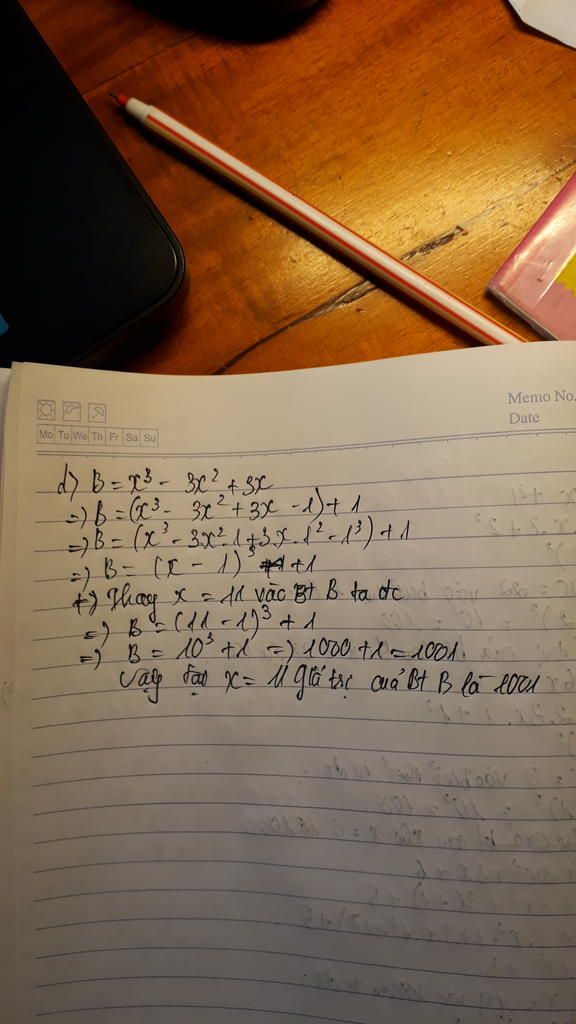 Memo No.
Date
Mo Tu We Th Fr Sa Su
d) B = x³ - 3x² + 3x
=) B = (x³ - 3x² + 3x - 1) + 1
=) B = (x³ - 3x².1 + 3.x.1² - 1³) + 1
=) B = (x - 1)³ + 1
+) Thay x = 11 vào Bt B ta đc
=) B = (11 - 1)³ + 1
=) B = 10³ + 1 =) 1000 + 1 = 1001.
Vậy tại x = 11 giá trị của Bt B là 1001